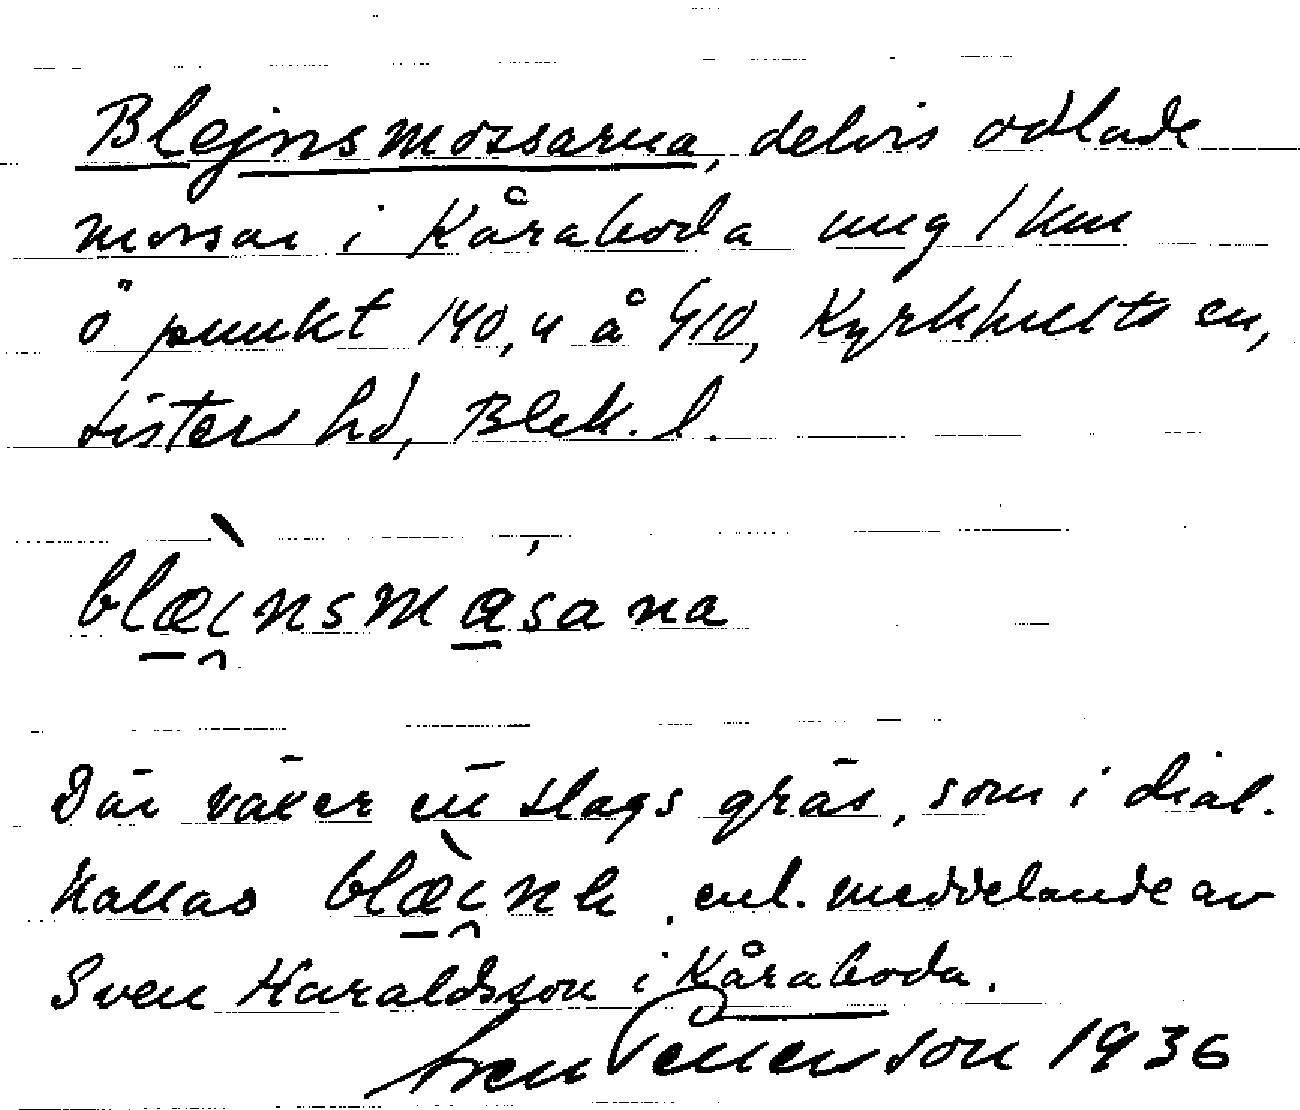 Blejnsmossarna, delvis odlade
mossar i Kåraboda ung 1 km
ö punkt 140,4 å G10, Kyrkhults sn,
Listers hd, Blek. l.
blæ̀i̯nsmásana
Där växer en slags gräs, som i dial.
kallas blæ̀i̯nk, enl. meddelande av
Sven Haraldsson i Kåraboda.
Sven 1936